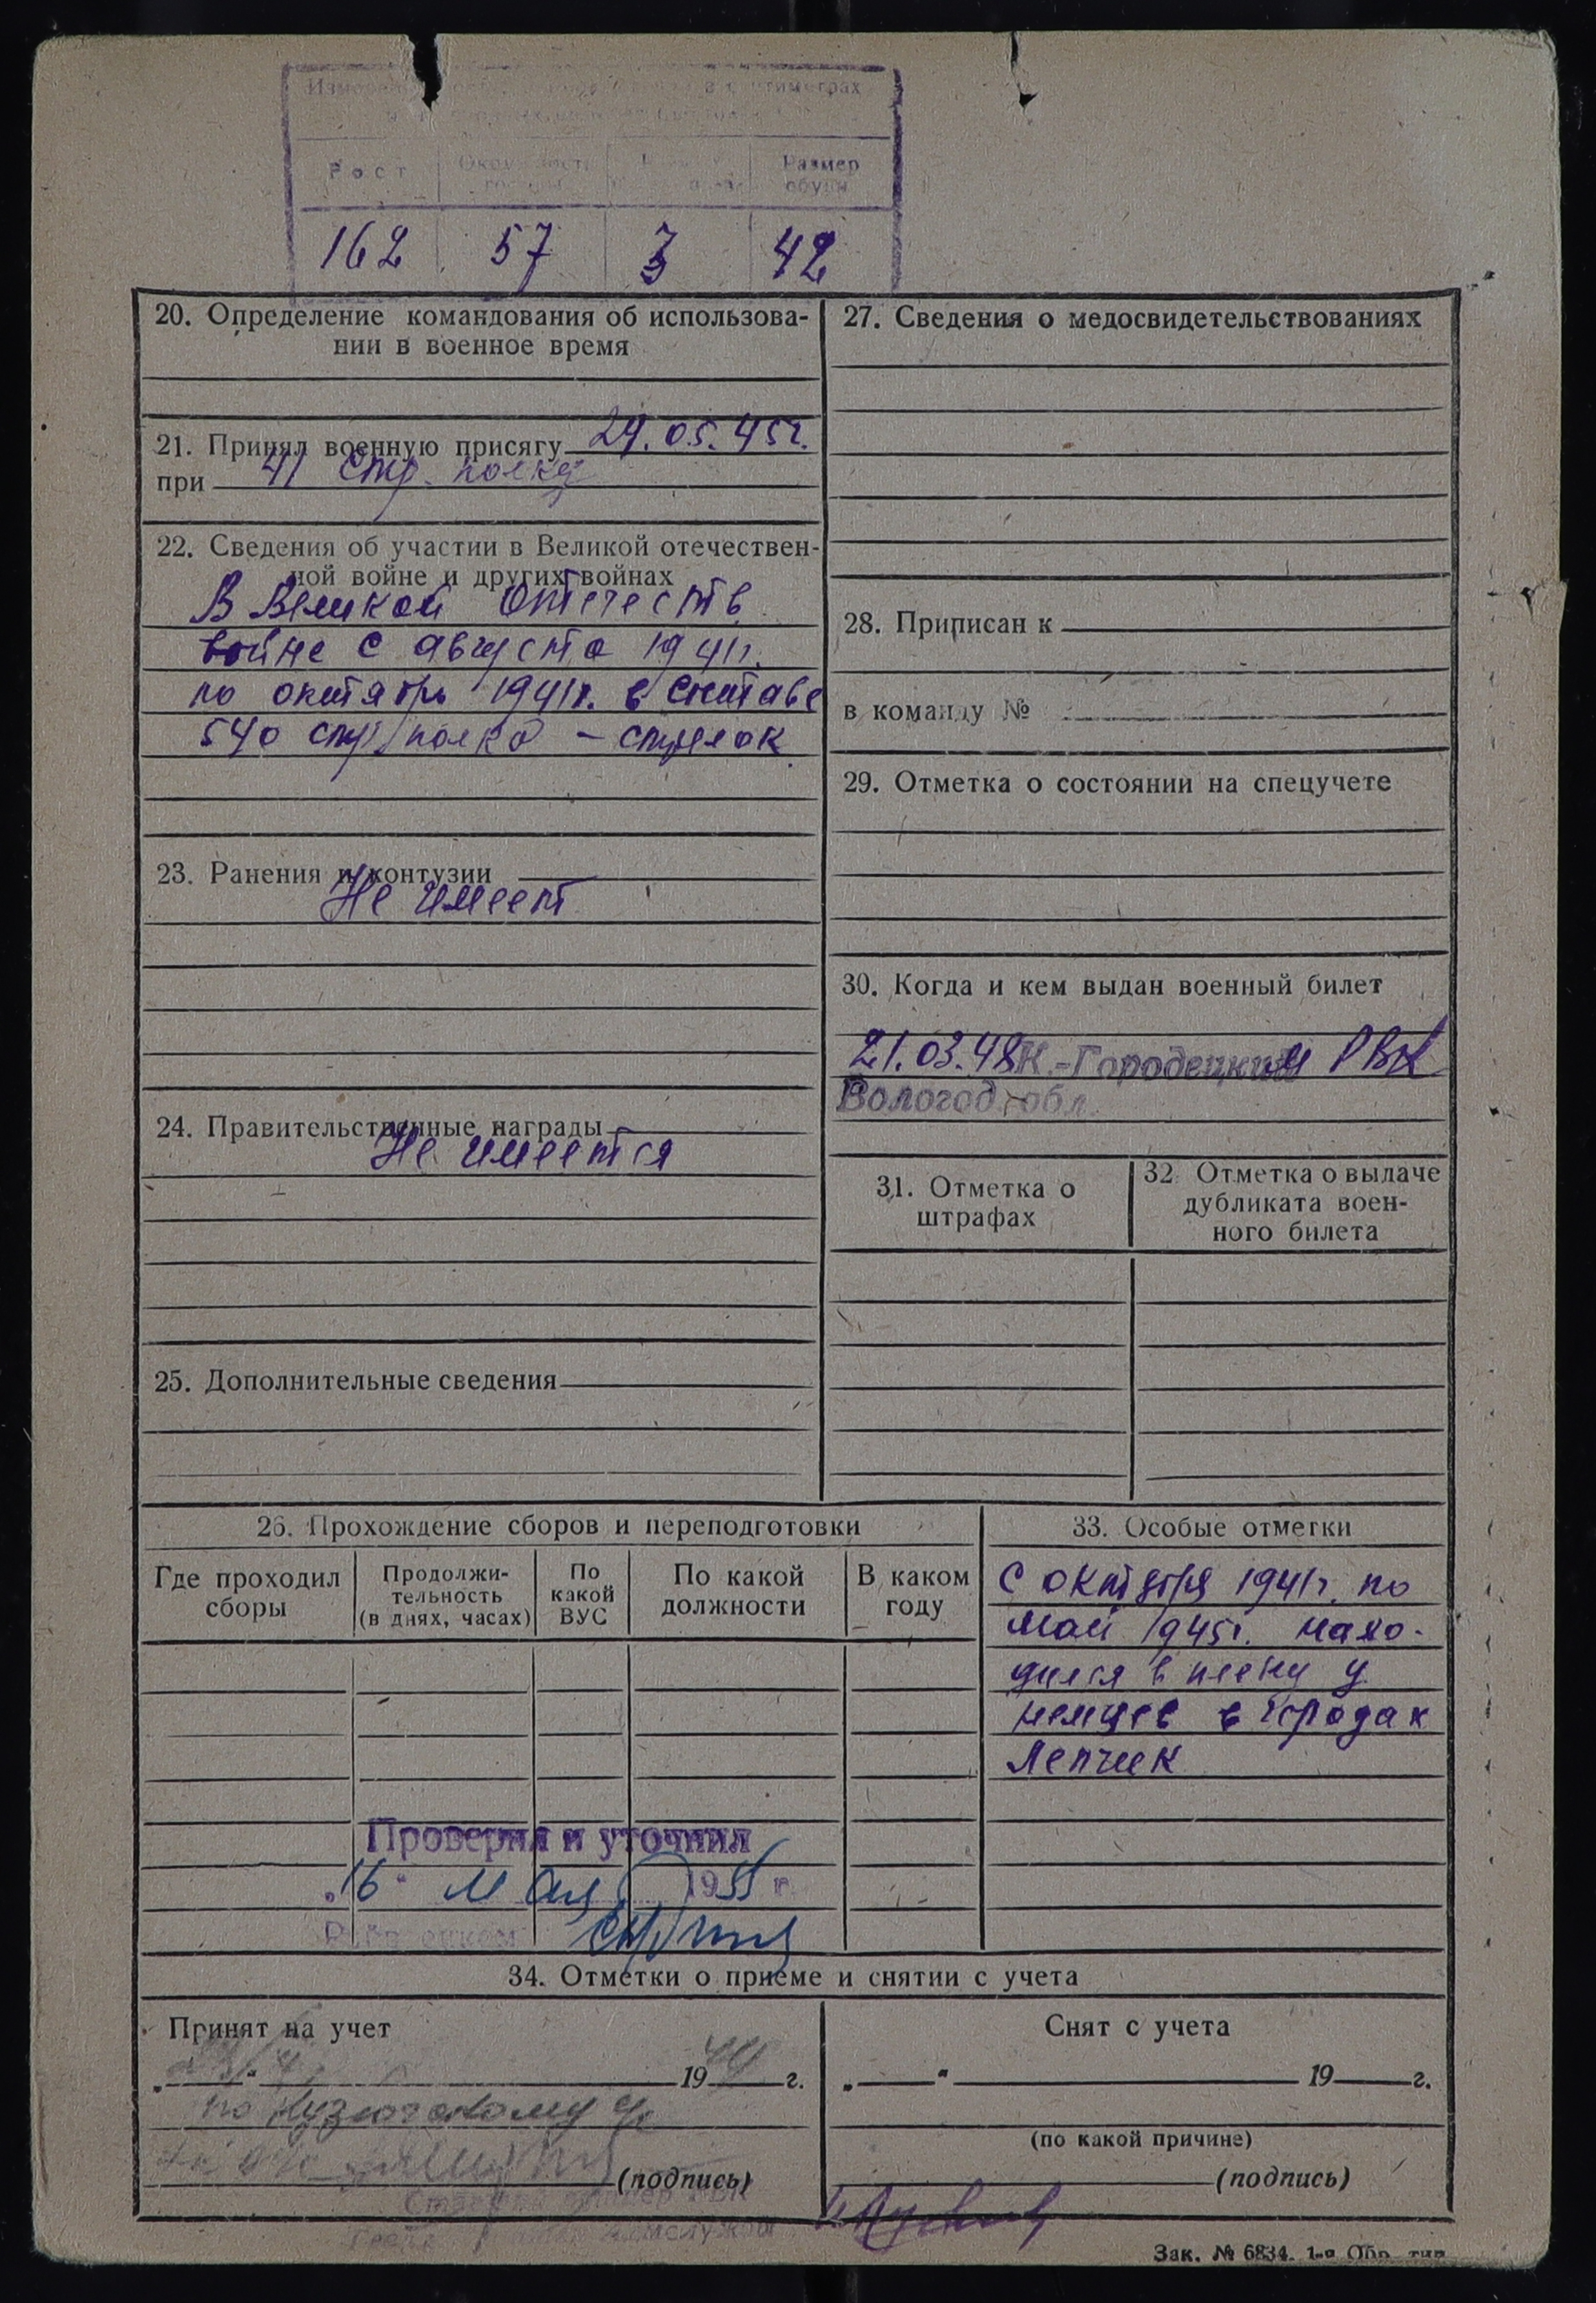 в сантиметрах
Рост
Размер
обуви
162 57 3 42
20. Определение командования об использова-
нии в военное время
21. Принял военную присягу 24.05.45г.
при 41 стр. полку
22. Сведения об участии в Великой отечествен-
ной войне и других войнах
В Великой Отечеств.
войне с августа 1941г.
по октябрь 1941г. в составе
540 стр. полка – стрелок.
23. Ранения и контузии
Не имеет
24. Правительственные награды
Не имеется
25. Дополнительные сведения
27. Сведения о медосвидетельствованиях
28. Приписан к
в команду №
29. Отметка о состоянии на спецучете
30. Когда и кем выдан военный билет
21.03.48 К.-Городецким РВК
Вологод. обл.
31. Отметка о
штрафах
32. Отметка о выдаче
дубликата воен-
ного билета
26. Прохождение сборов и переподготовки
Где проходил
сборы
Продолжи-
тельность
(в днях, часах)
По
какой
ВУС
По какой
должности
В каком
году
Проверил и уточнил
„16“ мая 1955 г.
33. Особые отметки
С октября 1941г. по
май 1945г. нахо-
дился в плену у
немцев в городах
Лепчик
34. Отметки о приеме и снятии с учета
Принят на учет
19 г.
по
(подпись)
Снят с учета
„ “ 19 г.
(по какой причине)
(подпись)
Зак. № 6834. 1-я Обр. тип.